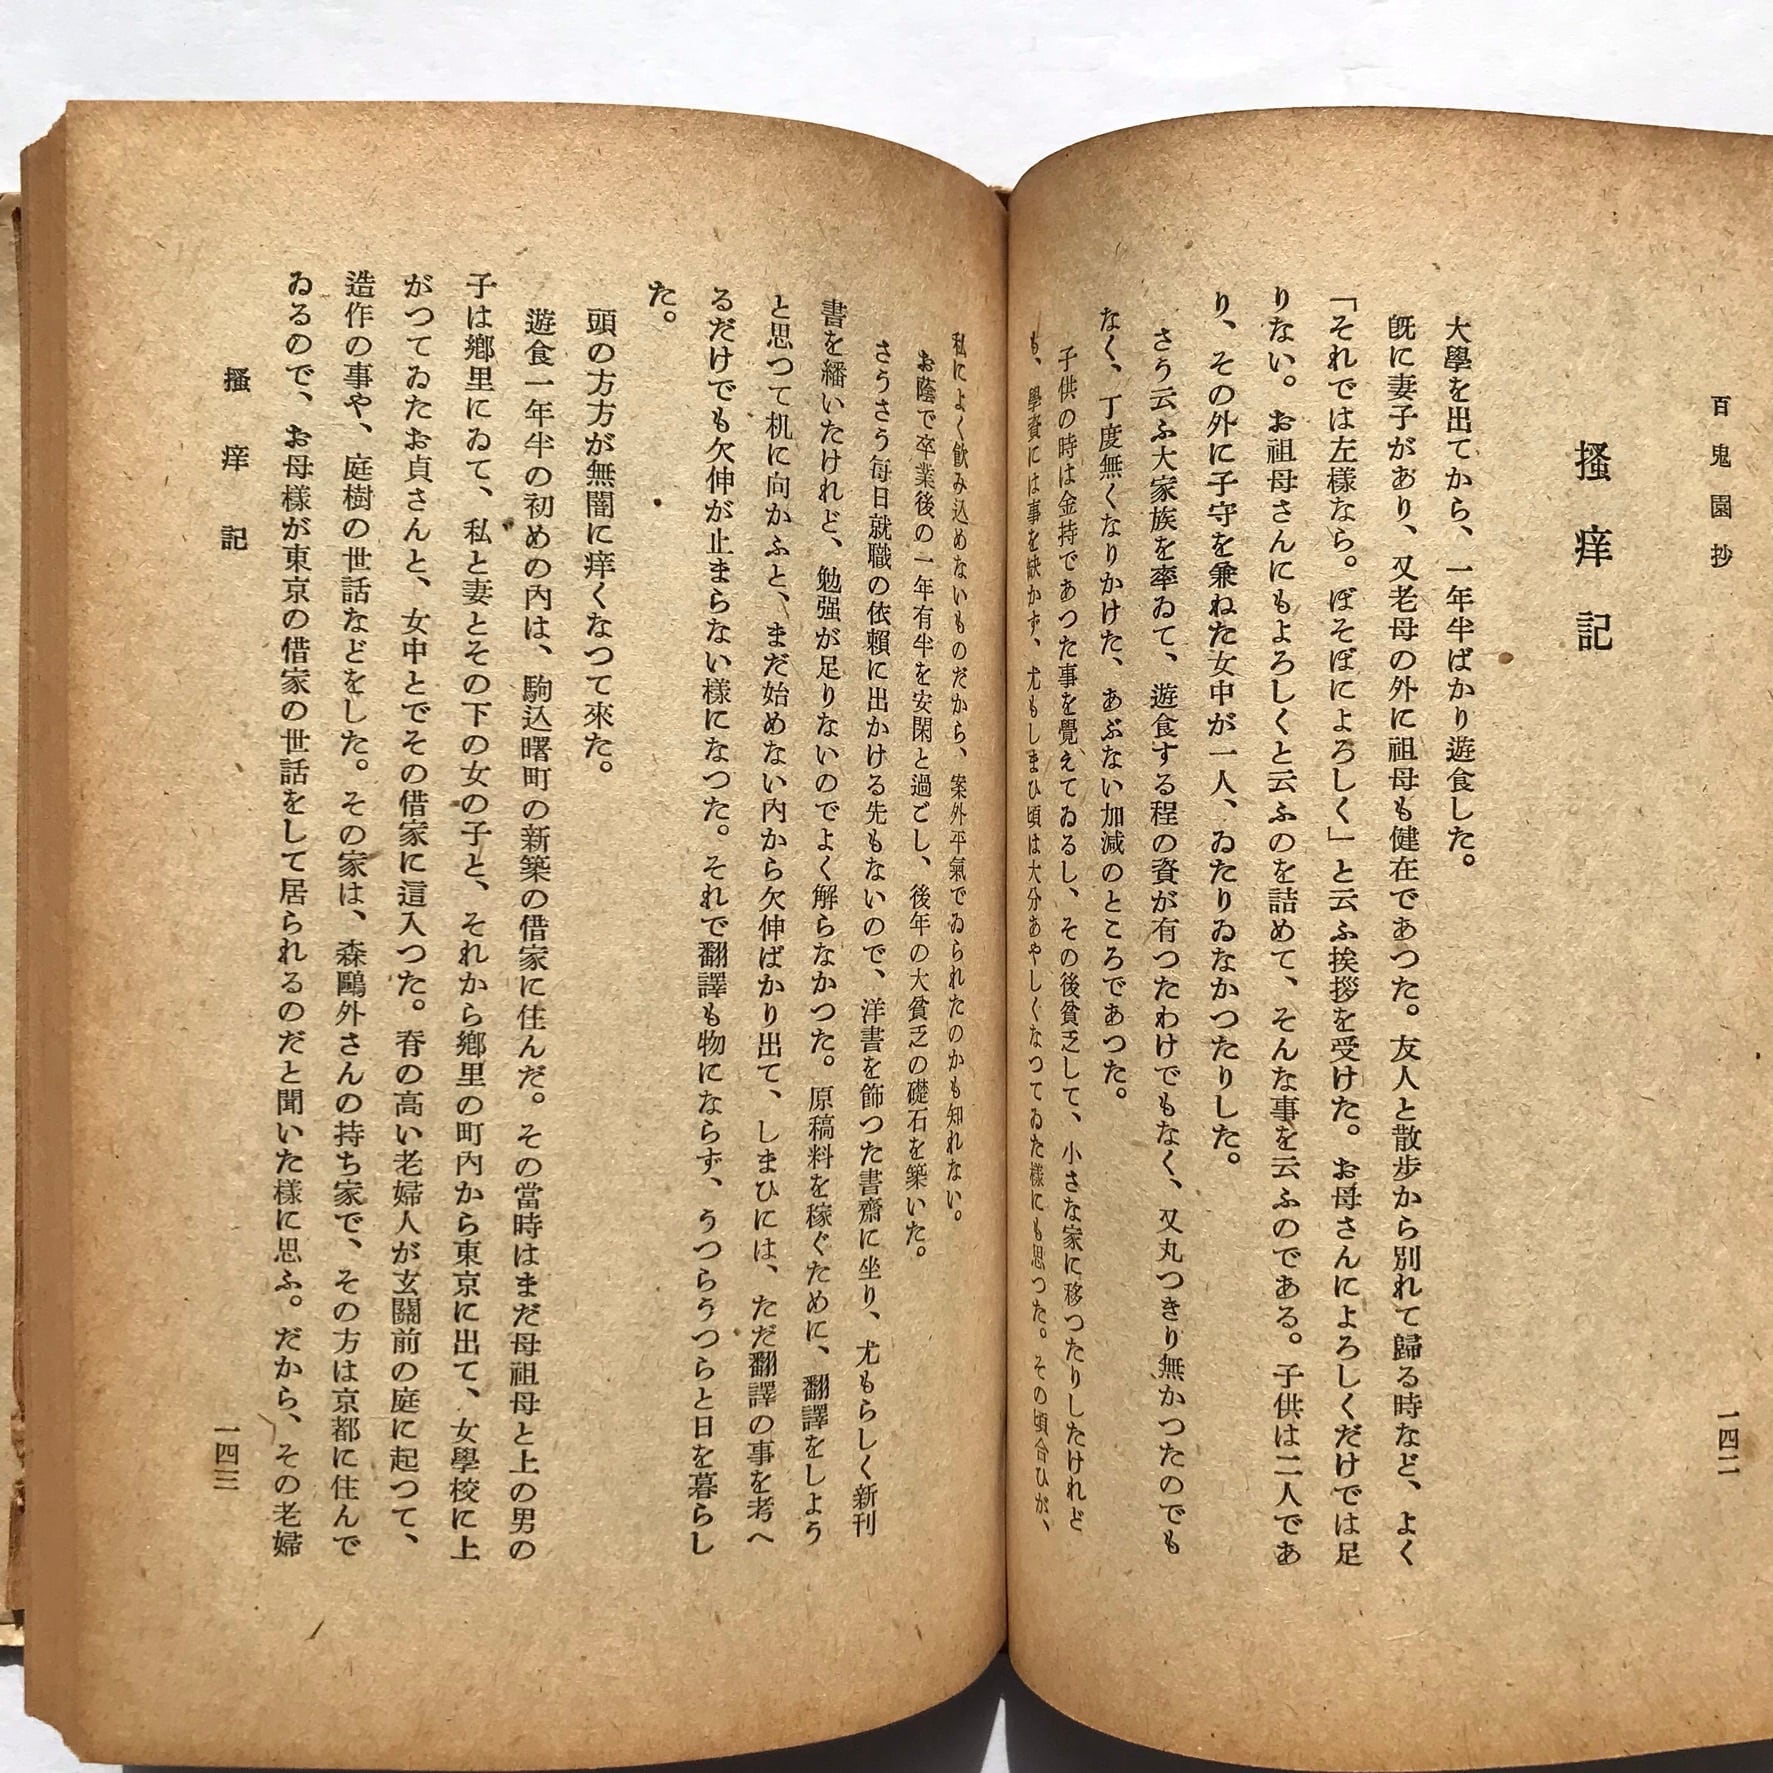 百鬼園抄
搔痒記
大學を出てから、一年半ばかり遊食した。
既に妻子があり、又老母の外に祖母も健在であつた。友人と散步から別れて歸る時など、よく
「それでは左樣なら。ぼそぼによろしく」と云ふ挨拶を受けた。お母さんによろしくだけでは足
りない。お祖母さんにもよろしくと云ふのを詰めて、そんな事を云ふのである。子供は二人であ
り、その外に子守を兼ねた女中が一人、ゐたりゐなかつたりした。
さう云ふ大家族を率ゐて、遊食する程の資が有つたわけでもなく、又丸つきり無かつたのでも
なく、丁度無くなりかけた、あぶない加減のところであつた。
子供の時は金持であつた事を覺えてゐるし、その後貧乏して、小さな家に移つたりしたけれど
も、學資には事を缺かず、尤もしまひ頃は大分あやしくなつてゐた樣にも思つた。その頃合ひが、
一四二
私によく飮み込めないものだから、案外平氣でゐられたのかも知れない。
お蔭で卒業後の一年有半を安閑と過ごし、後年の大貧乏の礎石を築いた。
さうさう每日就職の依賴に出かける先もないので、洋書を飾つた書齋に坐り、尤もらしく新刊
書を繙いたけれど、勉强が足りないのでよく解らなかつた。原稿料を稼ぐために、翻譯をしよう
と思つて机に向かふと、まだ始めない內から欠伸ばかり出て、しまひには、ただ翻譯の事を考へ
るだけでも欠伸が止まらない樣になつた。それで翻譯も物にならず、うつらうつらと日を暮らし
た。
頭の方方が無闇に痒くなつて來た。
遊食一年半の初めの內は、駒込曙町の新築の借家に住んだ。その當時はまだ母祖母と上の男の
子は鄕里にゐて、私と妻とその下の女の子と、それから鄕里の町內から東京に出て、女學校に上
がつてゐたお貞さんと、女中とでその借家に這入つた。脊の高い老婦人が玄關前の庭に起つて、
造作の事や、庭樹の世話などをした。その家は、森鷗外さんの持ち家で、その方は京都に住んで
ゐるので、お母樣が東京の借家の世話をして居られるのだと聞いた樣に思ふ。だから、その老婦
搔痒記
一四三